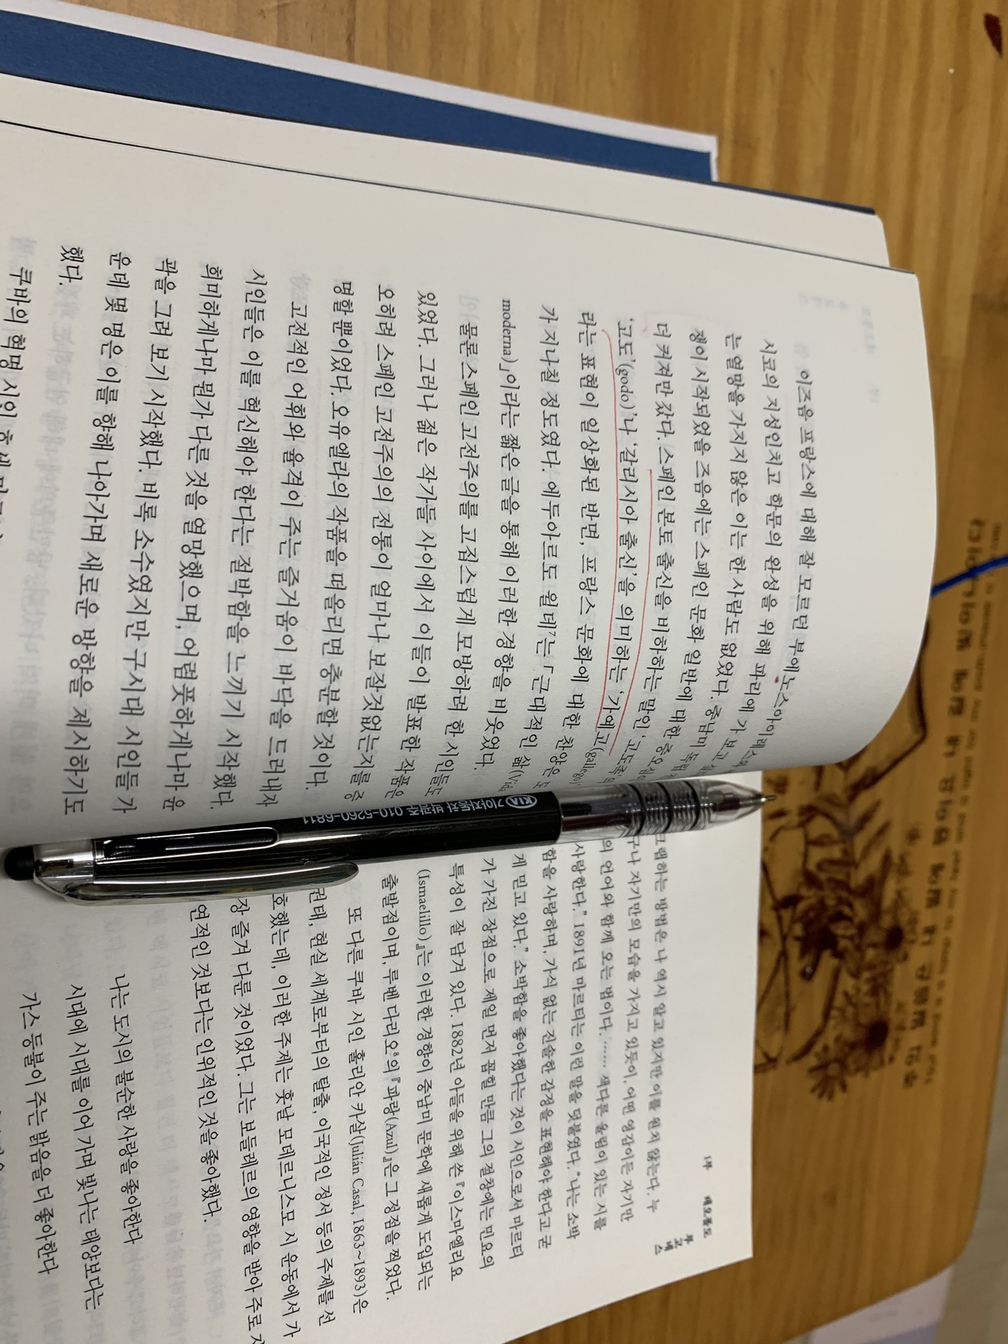 이즈음 프랑스에 대해 잘 모르던 부에노스아이레스와
시코의 지성인치고 학문의 완성을 위해 파리에 가 보고
는 열망을 가지지 않은 이는 한 사람도 없었다. 중남미
쟁이 시작되었을 즈음에는 스페인 문화 일반에 대한 증오심
더 커져만 갔다. 스페인 본토 출신을 비하하는 말인 '고도족
'고도'(godo)'나 '갈리시아 출신'을 의미하는 '가예고(gallego)'
라는 표현이 일상화된 반면, 프랑스 문화에 대한 찬양은 도
가 지나칠 정도였다. 에두아르도 윌데는 「근대적인 삶(Vida
moderna)」이라는 짧은 글을 통해 이러한 경향을 비웃었다.
물론 스페인 고전주의를 고집스럽게 모방하려 한 시인들도
있었다. 그러나 젊은 작가들 사이에서 이들이 발표한 작품은
오히려 스페인 고전주의의 전통이 얼마나 보잘것없는지를 증
명할 뿐이었다. 오유엘라의 작품을 떠올리면 충분할 것이다.
고전적인 어휘와 율격이 주는 즐거움이 바닥을 드러내자
시인들은 이를 혁신해야 한다는 절박함을 느끼기 시작했다.
희미하게나마 뭔가 다른 것을 열망했으며, 어렴풋하게나마 윤
곽을 그려 보기 시작했다. 비록 소수였지만 구시대 시인들 가
운데 몇 명은 이를 향해 나아가며 새로운 방향을 제시하기도
했다.
쿠바의 혁명 시인 호세 마르
KIA 기아자동차 박광주 010-5260-6811
1부 태오톨도
루고네스
크렘하는 방법은 나 역시 알고 있지만 이를 원치 않는다. 누
구나 자기만의 모습을 가지고 있듯이, 어떤 영감이든 자기만
의 언어와 함께 오는 법이다. …… 색다른 울림이 있는 시를
사랑한다." 1891년 마르티는 이런 말을 덧붙였다. "나는 소박
함을 사랑하며, 가식 없는 진솔한 감정을 표현해야 한다고 굳
게 믿고 있다." 소박함을 좋아했다는 것이 시인으로서 마르티
가 가진 장점으로 제일 먼저 꼽힐 만큼 그의 걸작에는 민요의
특성이 잘 담겨 있다. 1882년 아들을 위해 쓴 『이스마엘리요
(Ismaelillo)』는 이러한 경향이 중남미 문학에 새롭게 도입되는
출발점이며, 루벤 다리오의 『파랑(Azul)』은 그 정점을 찍었다.
또 다른 쿠바 시인 훌리안 카살(Julián Casal, 1863~1893)은
권태, 현실 세계로부터의 탈출, 이국적인 정서 등의 주제를 선
호했는데, 이러한 주제는 훗날 모데르니스모 시 운동에서 가
장 즐겨 다룬 것이었다. 그는 보들레르의 영향을 받아 주로 자
연적인 것보다는 인위적인 것을 좋아했다.
나는 도시의 불순한 사랑을 좋아한다
시대에 시대를 이어 가며 빛나는 태양보다는
가스 등불이 주는 밝음을 더 좋아한다